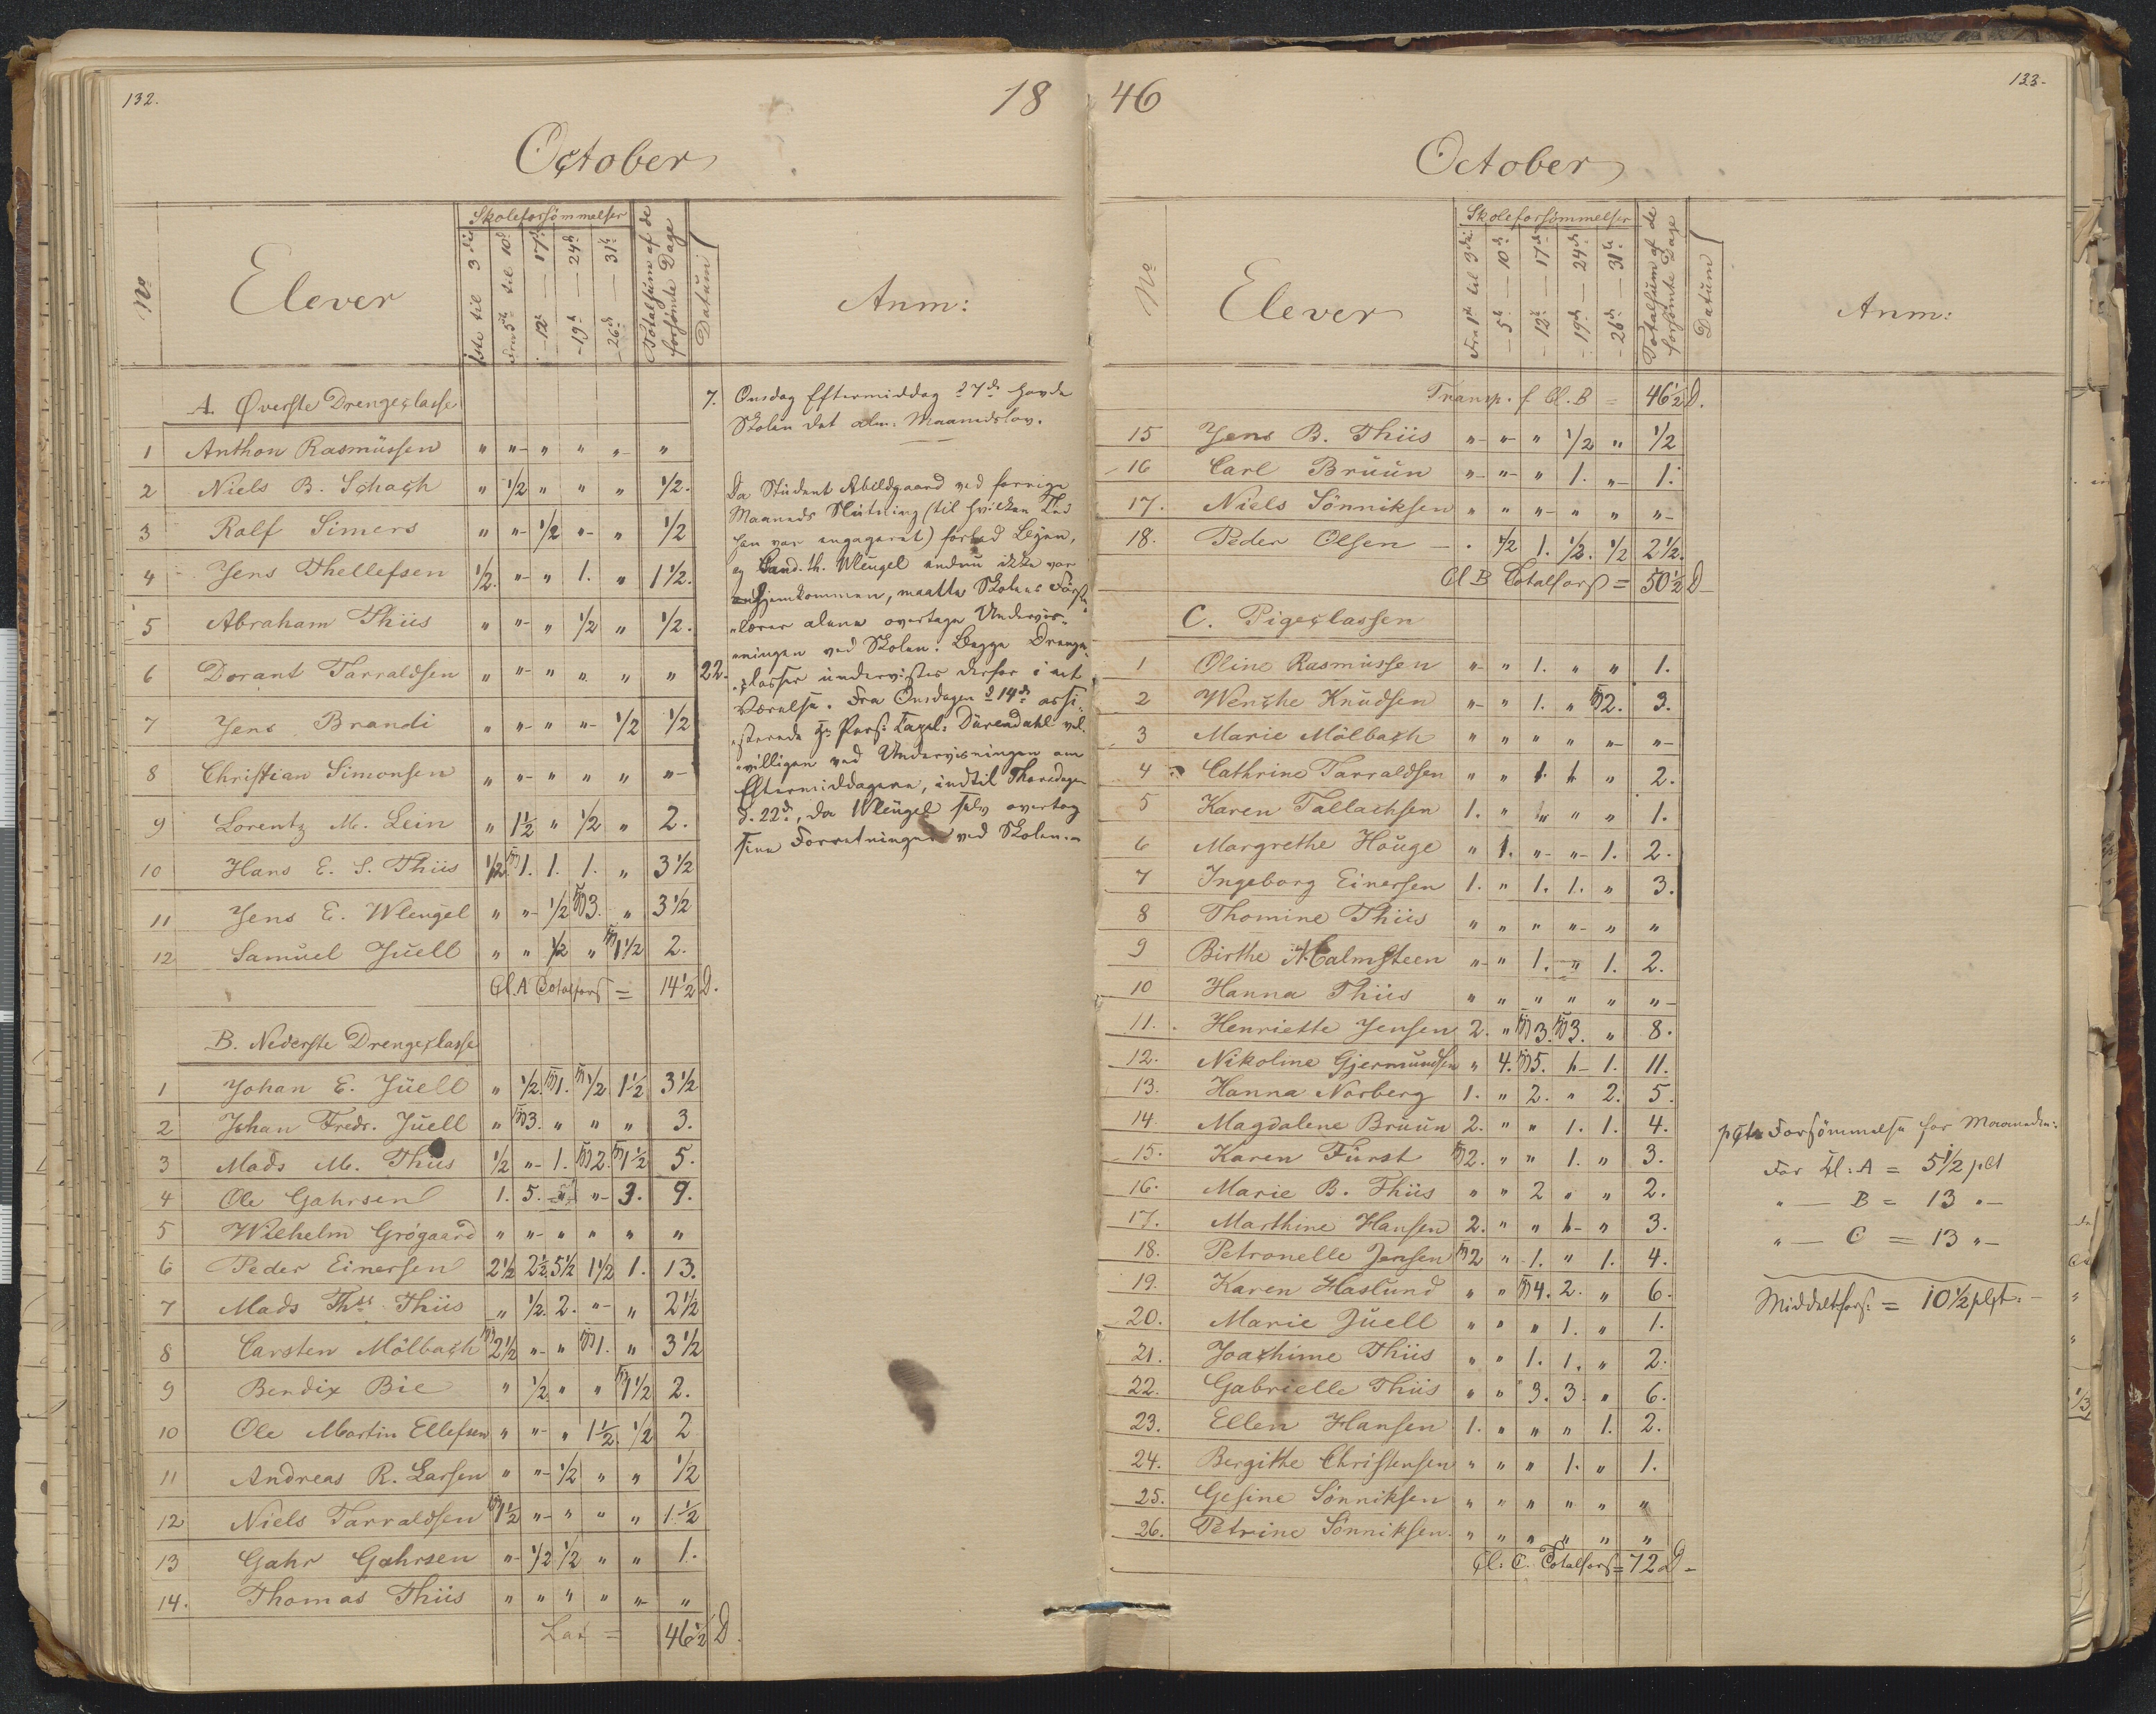 132.
18
October
No
Elever
Skoleforsömmelser
1ste til 3die
Fra 5te til 10d
- 12t — 17d
- 19d — 24d
- 26d — 31t
Totalsum af de
forsömte Dage
Datum
Anm:
A. Øverste Drengeclasse
1 Anthon Rasmüssen " " " " " "
2 Niels B. Schach " 1/2 " " " 1/2.
3 Rolf Simers " " 1/2 " " 1/2
4 Jens Thellefsen 1/2. " " 1. " 1 1/2.
5 Abraham Thiis " " " 1/2 " 1/2.
6 Dorant Tarraldsen " " " " " "
7 Jens Brandi " " " " 1/2 1/2
8 Christian Simonsen " " " " " "
9 Lorentz M. Lein " 1 1/2 " 1/2 " 2.
10 Hans E. S. Thiis 1/2 1. 1. 1. " 3 1/2
11 Jens E. Wleügel " " 1/2 3. " 3 1/2
12 Samüel Jüell " " 1/2 " 1 1/2 2.
Cl. A Totalfors = 14 1/2 D.
B. Nederste Drengeclasse
1 Johan E. Jüell " 1/2. 1. 1/2 1 1/2 3 1/2
2 Johan Fredr. Jüell " 3. " " " 3.
3 Mads M. Thiis 1/2 " 1. 2. 1 1/2 5.
4 Ole Gahrsen 1. 5. " " 3. 9.
5 Wilhelm Grögaard " " " " " "
6 Peder Einersen 2 1/2 2 1/2 5 1/2 1 1/2 1. 13.
7 Mads Ths. Thiis " 1/2. 2. " " 2 1/2
8 Carsten Mölbach 2 1/2 " " 1. " 3 1/2
9 Bendix Bie " 1/2. " " 1 1/2 2.
10 Ole Martin Ellefsen " " " 1 1/2. 1/2 2
11 Andreas R. Larsen " " 1/2 " " 1/2
12 Niels Tarraldsen 1 1/2 " " " " 1 1/2
13 Gahr Gahrsen " 1/2 1/2 " " 1.
14. Thomas Thiis " " " " " "
Lat = 46 1/2 D.
7. Onsdag Eftermiddag d 7de havde
Skolen det alm. Maanedslov.
Da Stüdent Abildgaard ved forrige
Maaneds Slütning (til hvilken Tid
han var engageret) forlod Byen,
og Cand. th. Wleugel endnu ikke var
hjemkommen, maatte Skolens Förste-
"lærer alene overtage Undervis-
"ningen ved Skolen. Begge Drenge-
22. "classer ündervistes derfor i eet
Værelse. Fra Onsdagen d 14de assi-
"sterede Hr Pers: Capel: Dürendahl vel-
"villigen ved Undervisningen om
Eftermiddagene, indtil Thorsdagen
d. 22d, da Wleügel selv overtog
sine Forretninger ved Skolen.
46
133.
October
No
Elever
Skoleforsömmelser
Fra 1ste til 3die
- 5te — 10de
- 12te — 17de
- 19de — 24de
- 26de — 31te
Totalsum af de
forsömte Dage
Datum
Anm:
Transp. f Cl. B = 46 1/2 D.
15 Jens B. Thiis " " " 1/2 " 1/2
16 Carl Brüün " " " 1. " 1.
17. Niels Sönniksen " " " " " "
18. Peder Olsen . 1/2 1. 1/2. 1/2 2 1/2.
Cl B Totalfors = 50 1/2 D
C. Pigeclassen
1 Oline Rasmüssen " " 1. " " 1.
2 Wenche Knüdsen " " 1. " 2. 3.
3 Marie Mölbach " " " " " "
4 Cathrine Tarraldsen " " 1. 1. " 2.
5 Karen Tallachsen 1. " " " " 1.
6 Margrethe Haüge " 1. " " 1. 2.
7 Ingeborg Einersen 1. " 1. 1. " 3.
8 Thomine Thiis " " " " " "
9 Birthe Malmsteen " " 1. " 1. 2.
10 Hanna Thiis " " " " " "
11. Henriette Jensen 2. " 3. 3. " 8.
12. Nikoline Gjermundsen " 4. 5. 1. 1. 11.
13. Hanna Norberg 1. " 2. " 2. 5.
14. Magdalene Brüün 2. " " 1. 1. 4.
15. Karen Fürst 2. " " 1. " 3.
16. Marie B. Thiis " " 2 " " 2.
17. Marthine Hansen 2. " " 1. " 3.
18. Petronelle Jensen 2 " 1. " 1. 4.
19. Karen Haslund " " 4. 2. " 6.
20. Marie Jüell " " " 1. " 1.
21. Joachime Thiis " " 1. 1. " 2.
22. Gabrielle Thiis " " 3. 3. " 6.
23. Ellen Hansen 1. " " " 1. 2.
24. Bergithe Christensen " " " 1. " 1.
25. Gesine Sönniksen " " " " " "
26. Petrine Sönniksen. " " " " " "
Cl: C. Totalfors = 72 D
pCts Forsömmelse for Maaneden:
For Cl: A = 5 1/2 pCt
" — B = 13 " —
" — C = 13 " —
Middeltfors: = 10 1/2 pCt.